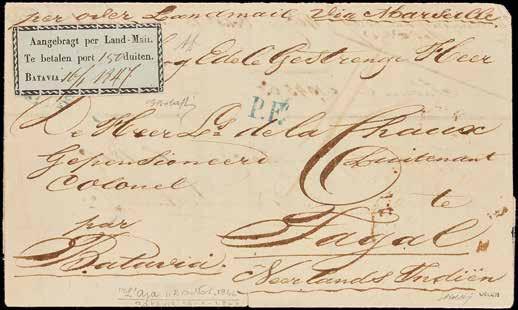 per over Landmail via Marseille
Aangebragt per Land-Mail.
Te betalen port 150 duiten.
BATAVIA 16/1 1847
Edele Gestrenge Heer
P.F.
De Heer L. de la Chaux
Gepensioneerd Luitenant
Colonel
te
par Tagal
Batavia
Neerlands Indiën